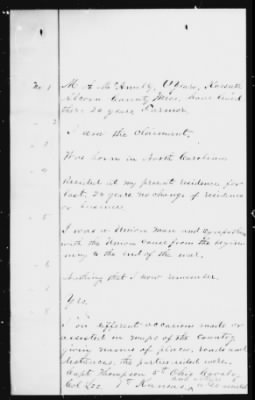 No. 1 M. A. McAnulty, years, Kossuth
Alcorn County Miss, have lived
there 20 years Farmer.
I am the Claimant.
Was born in North Carolina
Resided at my present residence for
last 20 years no change of residence
or business
I was a Union man and sympathized
with the Union cause from the beginn-
ing to the end of the war.
Nothing that I now remember.
Yes.
I on different occasions made or
assisted in maps of the Country
giving names of places, roads and
distances, the parties aided were.
Capt Thompson 5th Ohio Cavalry,
Col Lee 7th Kansas, and others